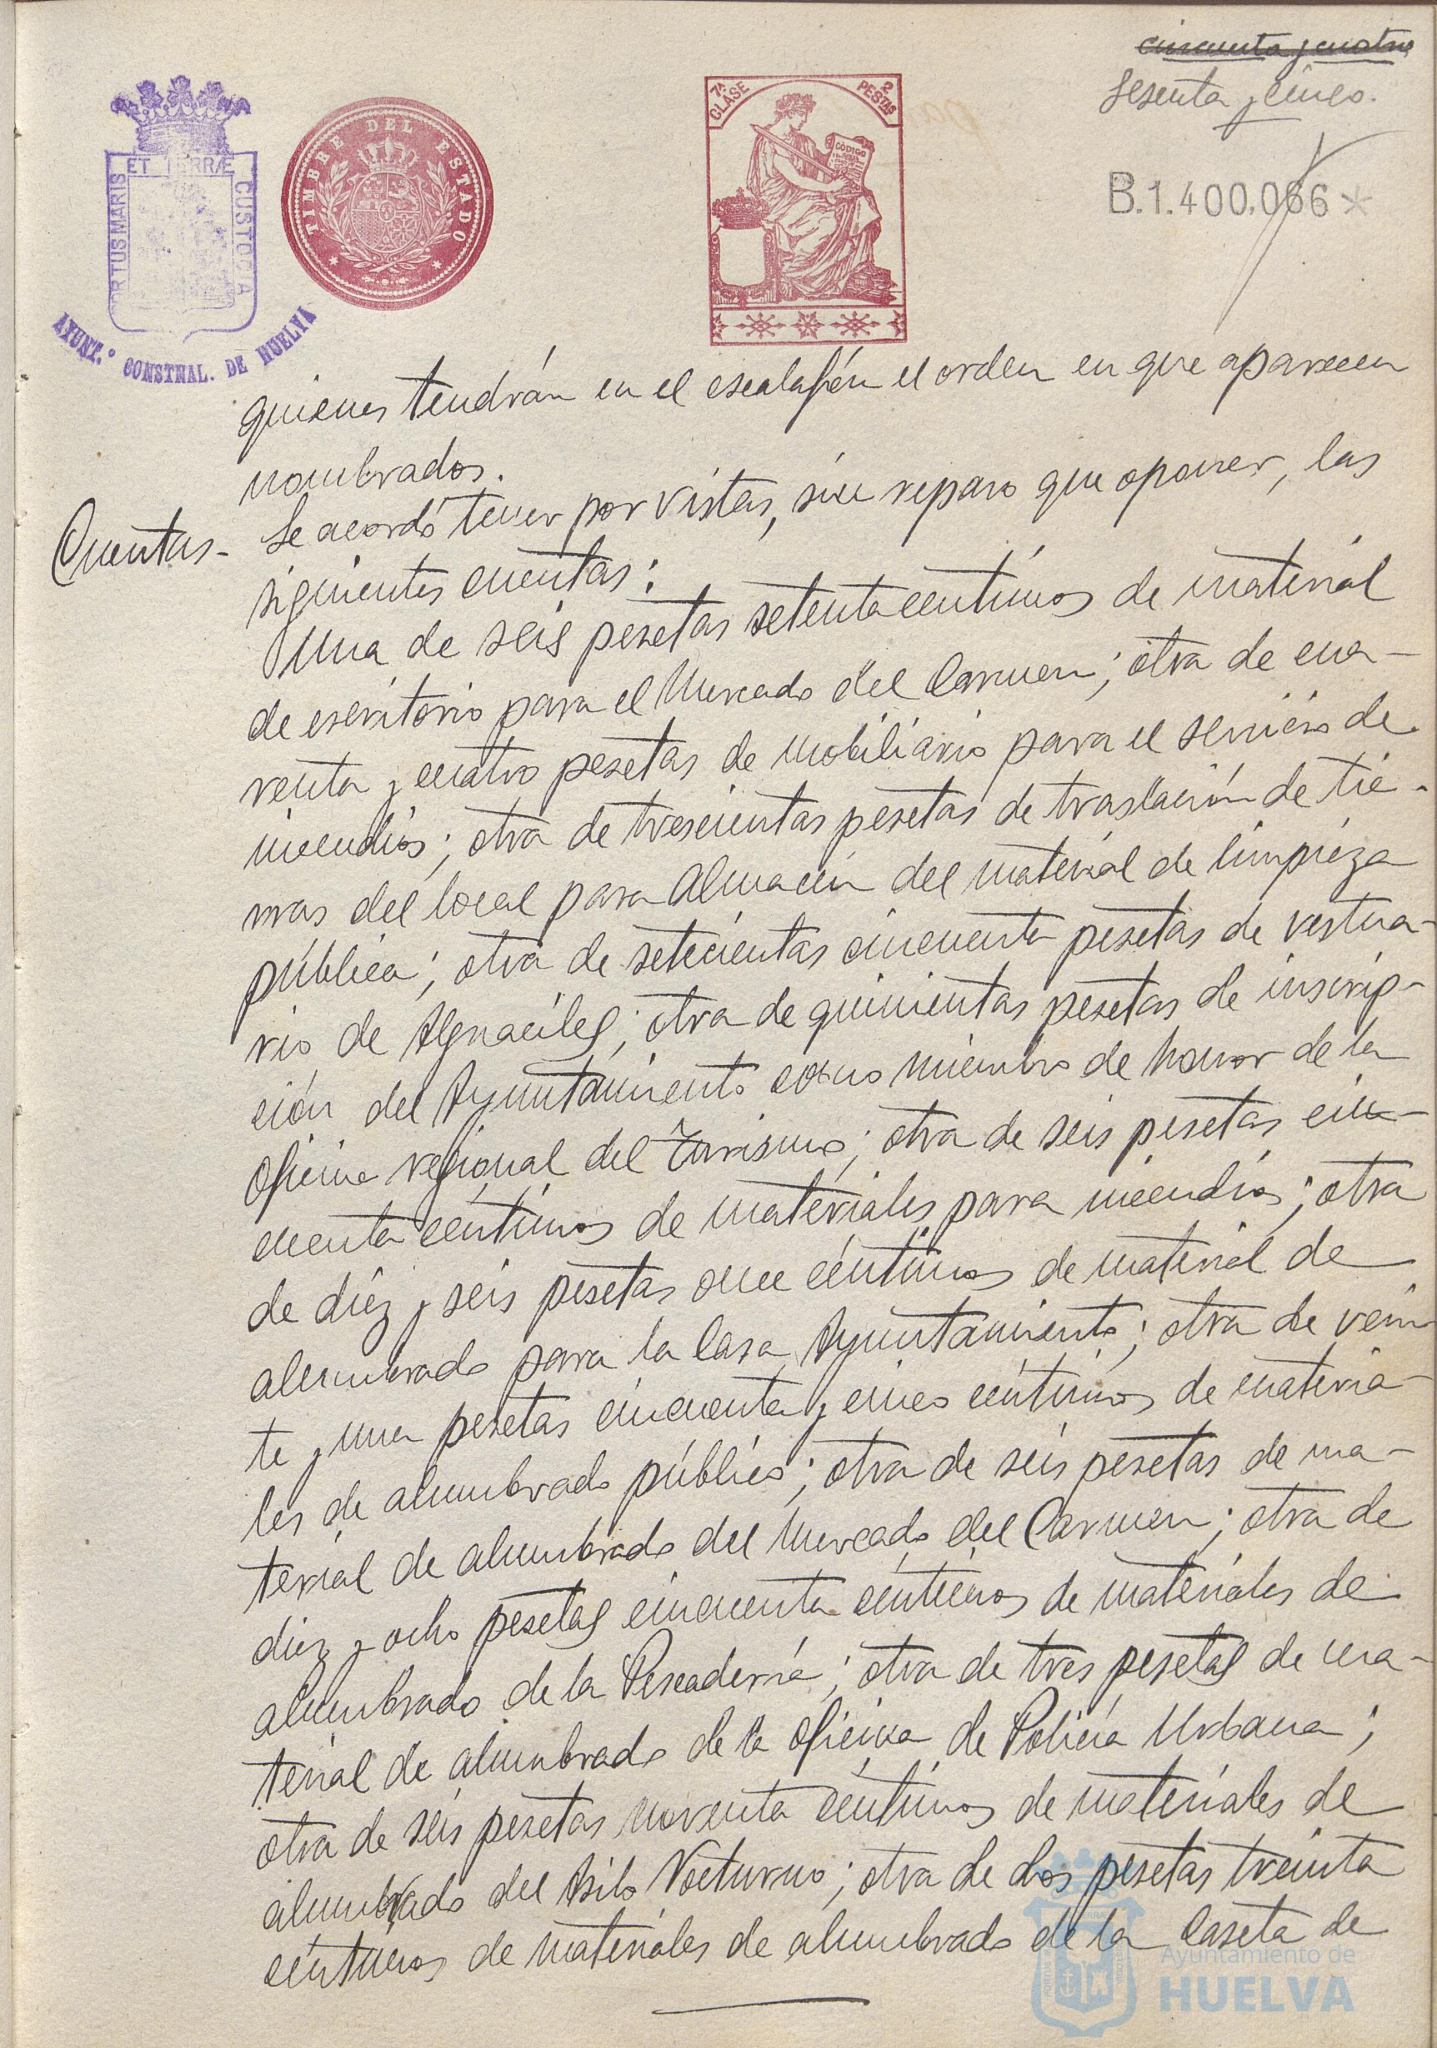 cincuenta y cuatro
sesenta y cinco.
7ª CLASE
2 PESTAS
CÓDIGO
TIMBRE DEL ESTADO
PORTUS MARIS ET TERRÆ CUSTODIA
AYUNT.º CONSTNAL. DE HUELVA
B.1.400.066*
quienes tendrán en el escalafón el orden en que aparecen
nombrados.
Cuentas- Se acordó tener por vistas, sin reparo que oponer, las
siguientes cuentas:
Una de seis pesetas setenta céntimos de material
de escritorio para el Mercado del Carmen; otra de cua-
renta y cuatro pesetas de mobiliario para el servicio de
incendios; otra de trescientas pesetas de traslación de tie-
rras del local para Almacén del material de limpieza
pública; otra de setecientas cincuenta pesetas de vestua-
rio de Alguaciles; otra de quinientas pesetas de inscrip-
ción del Ayuntamiento como miembro de honor de la
Oficina regional del Turismo; otra de seis pesetas cin-
cuenta céntimos de materiales para incendios; otra
de diez y seis pesetas once céntimos de material de
alumbrado para la Casa Ayuntamiento; otra de vein-
te y una pesetas cincuenta y cinco céntimos de materia-
les de alumbrado público; otra de seis pesetas de ma-
terial de alumbrado del Mercado del Carmen; otra de
diez y ocho pesetas cincuenta céntimos de materiales de
alumbrado de la Pescadería; otra de tres pesetas de ma-
terial de alumbrado de la oficina de Policía Urbana;
otra de seis pesetas noventa céntimos de materiales de
alumbrado del Asilo Nocturno; otra de dos pesetas treinta
céntimos de materiales de alumbrado de la Caseta de
Ayuntamiento de
HUELVA